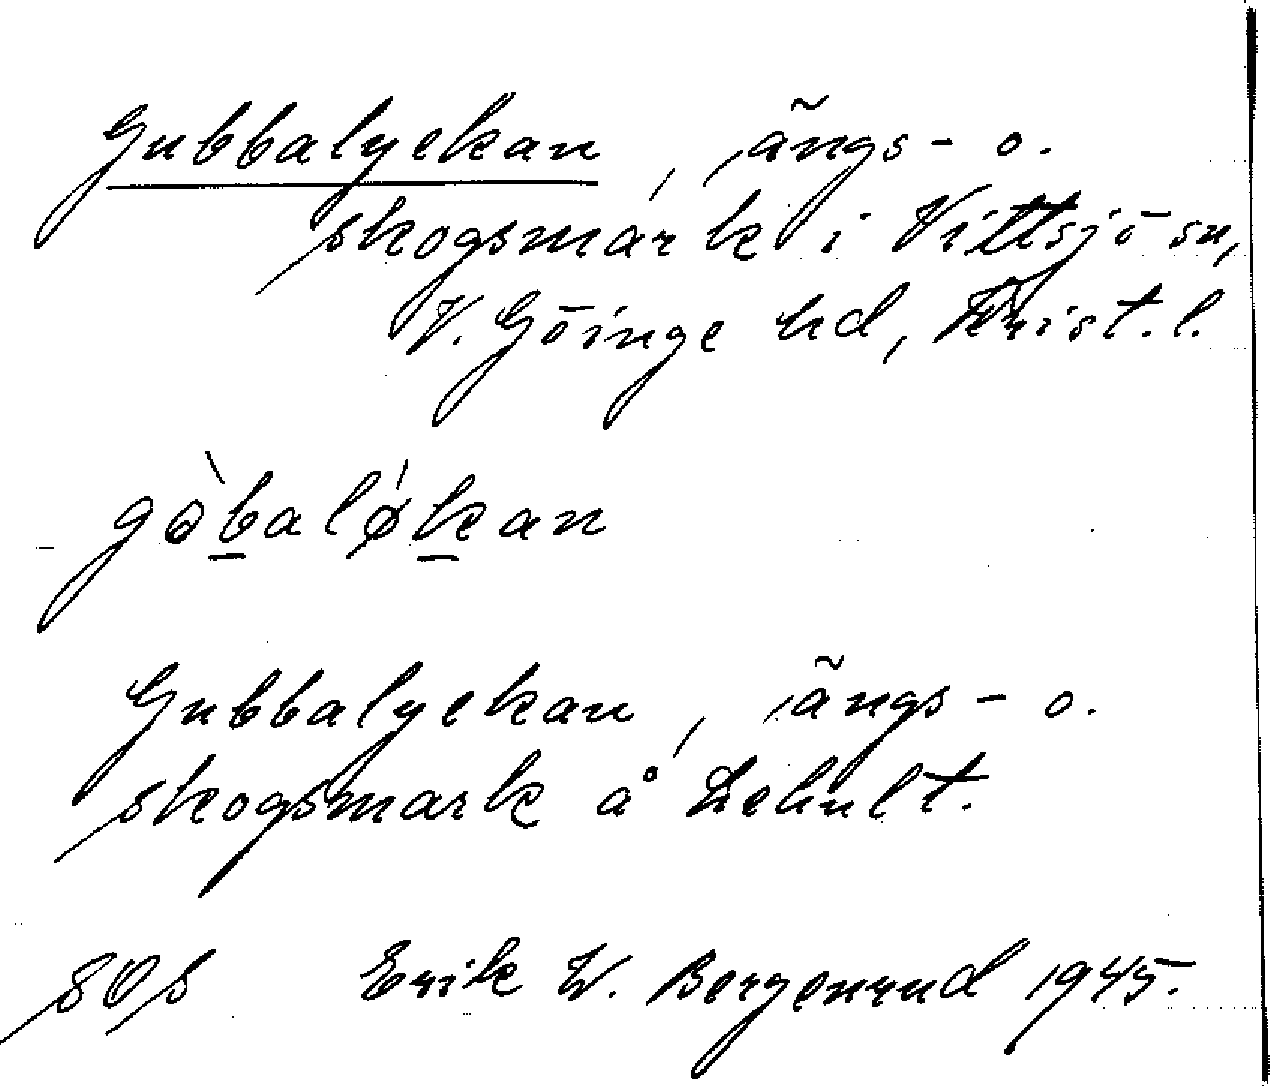 Gubbalyckan, ängs- o.
skogsmark i Vittsjö sn,
V. Göinge hd, Krist. l.
gòbaløkan
Gubbalyckan, ängs- o.
skogsmark å Lehult.
SOS Erik W. Bergenrud 1945.